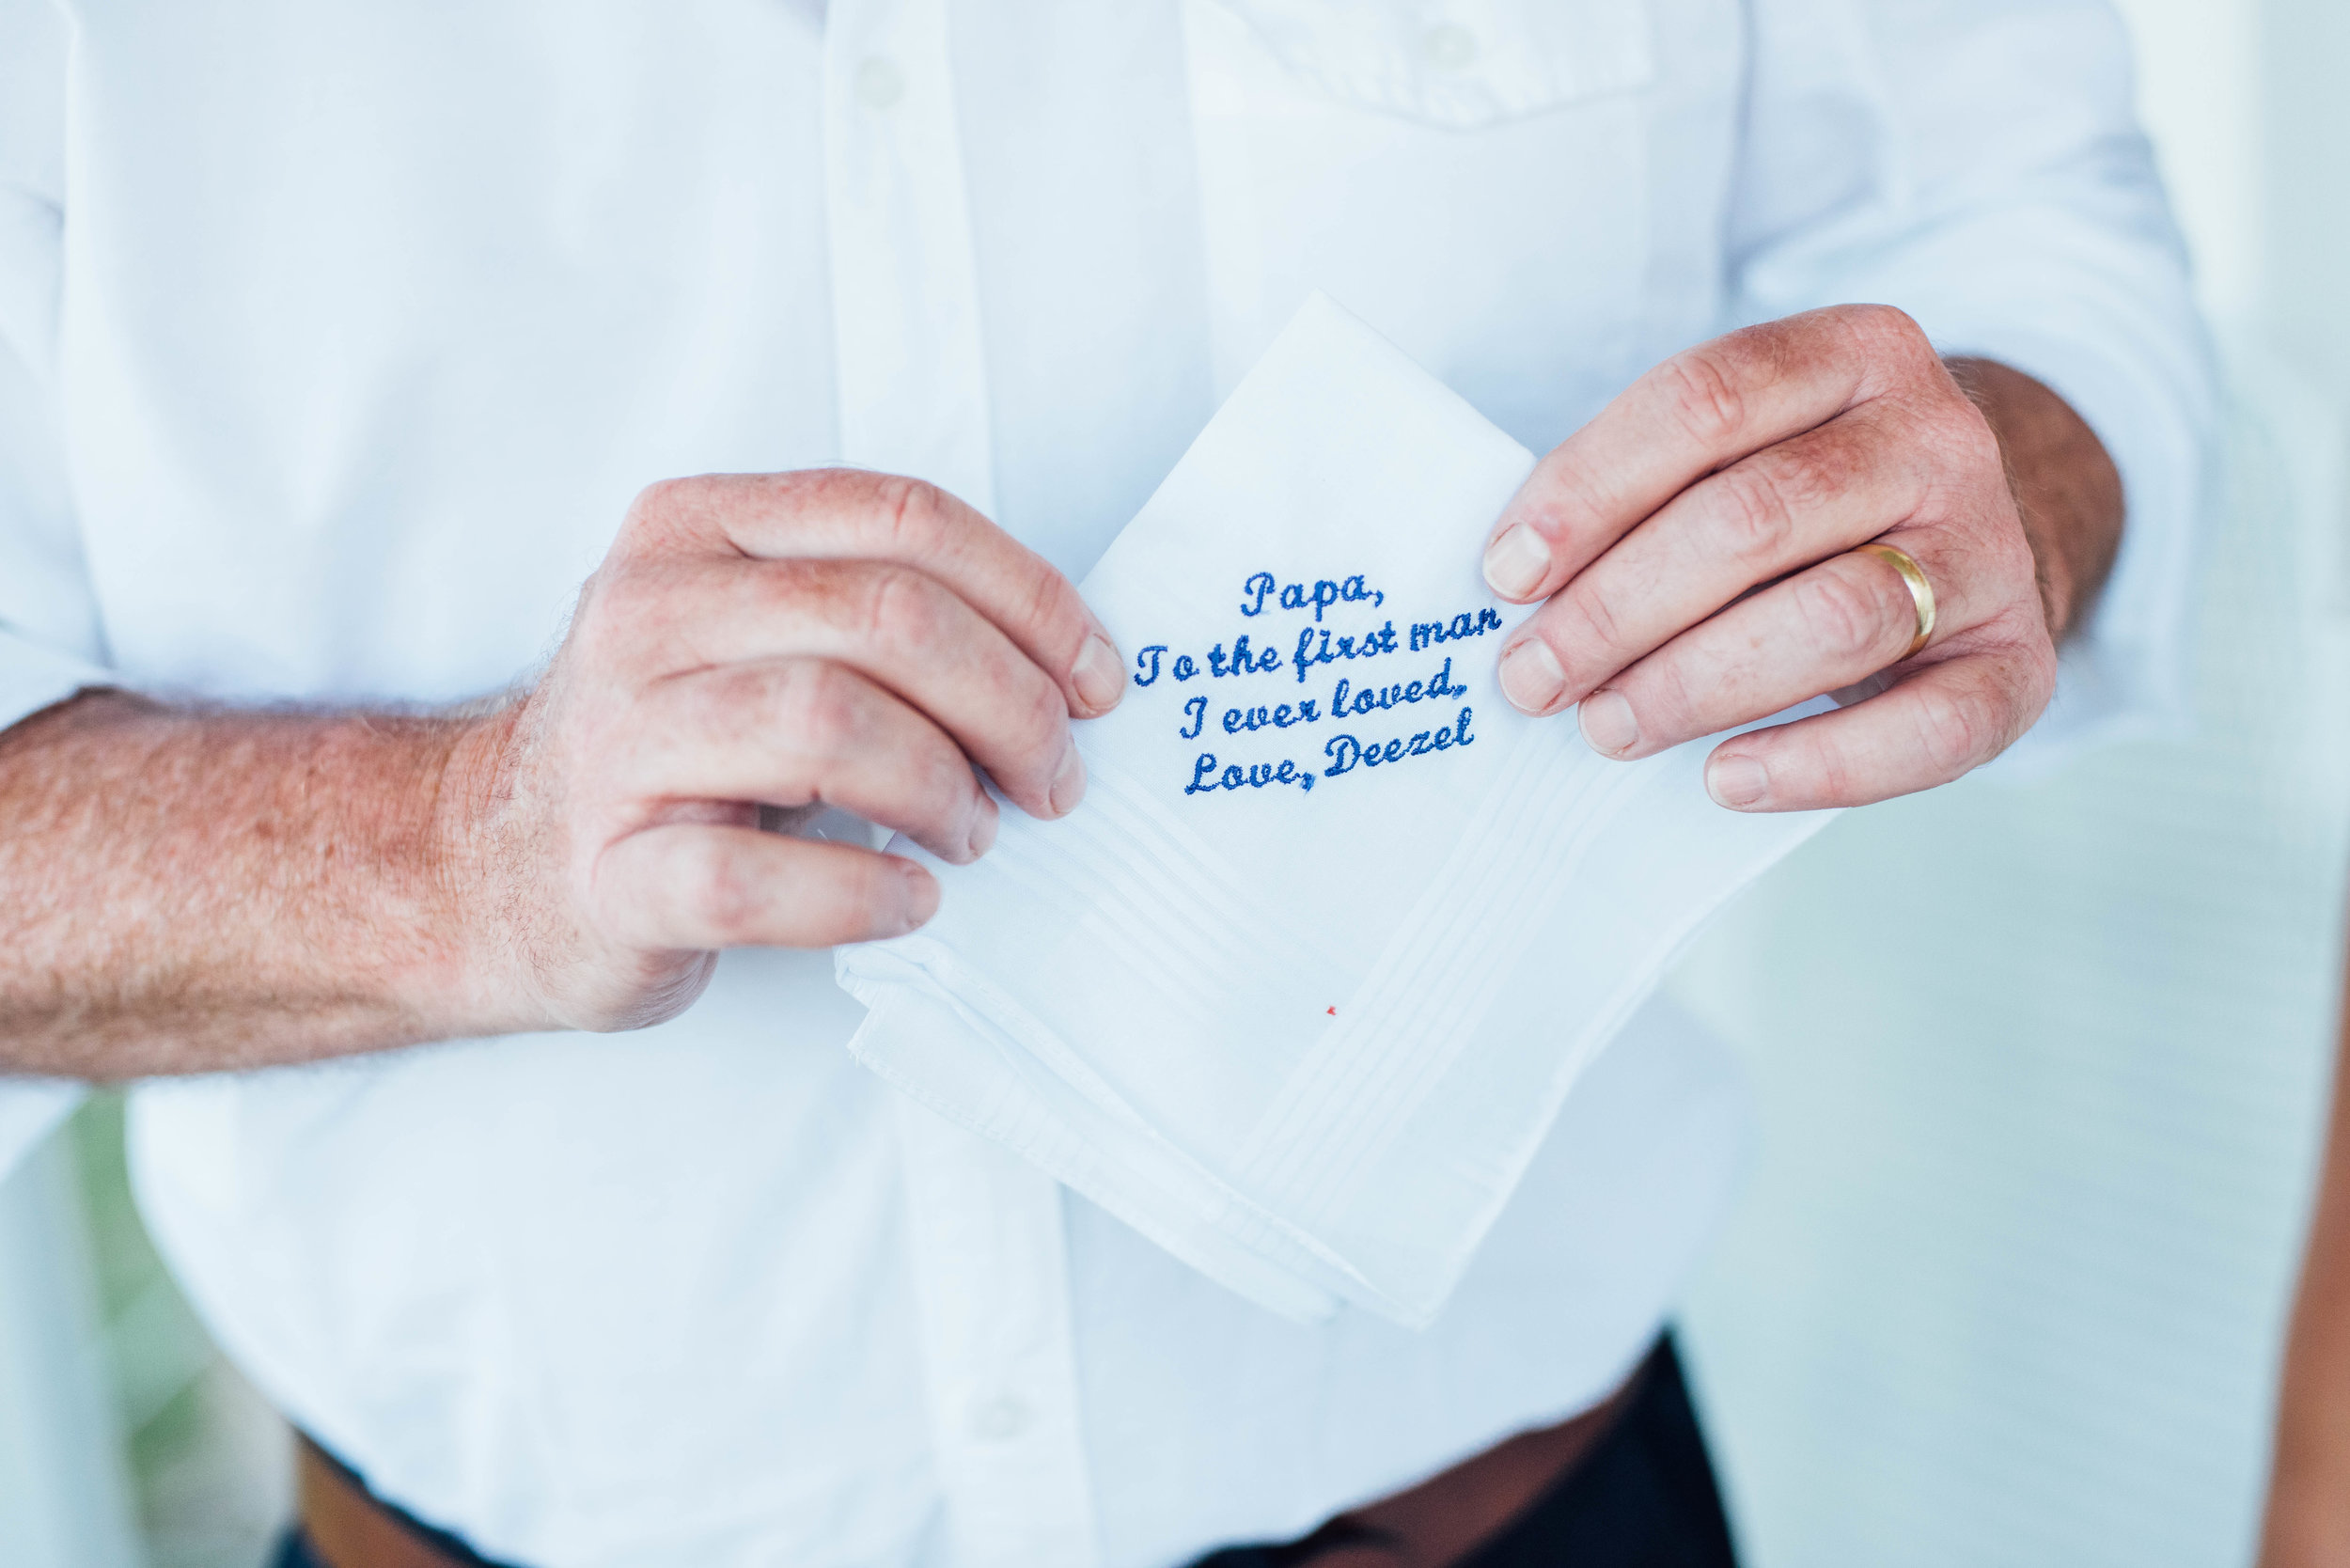 Papa,
To the first man
I ever loved,
Love, Deezel